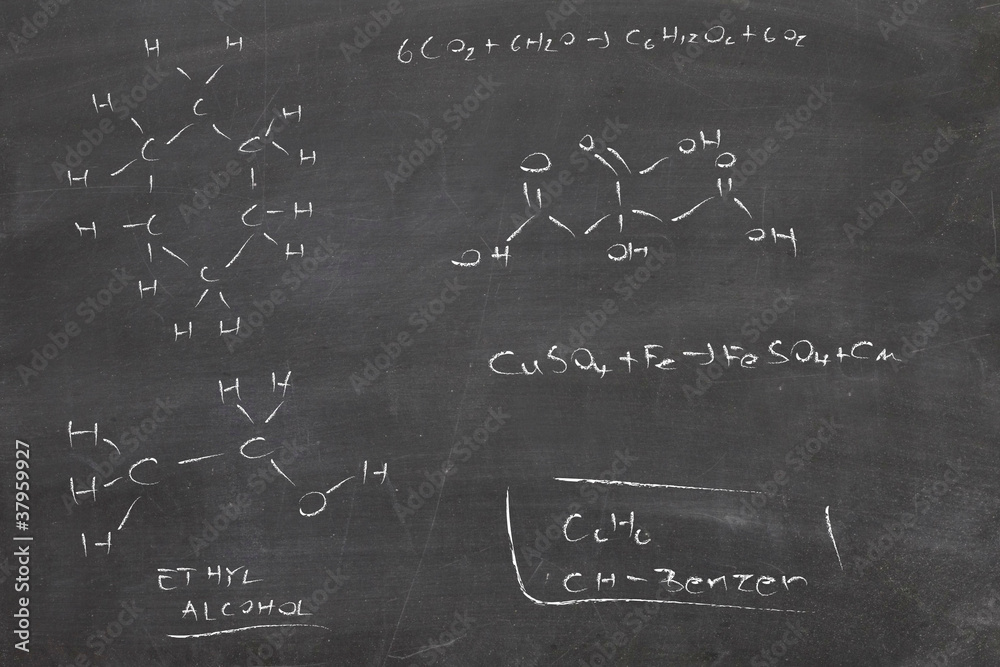 6CO₂+6H2O→C6H12O6+6O₂
H H
H C H
C C
H H
H C C H
H
H C
H H
O O OH
O
OH OH OH
CuSO₄+Fe→FeSO₄+Cu
H H
H C
H C H
O
H
ETHYL
ALCOHOL
C6H6
CH-Benzen
Adobe Stock | #37959927